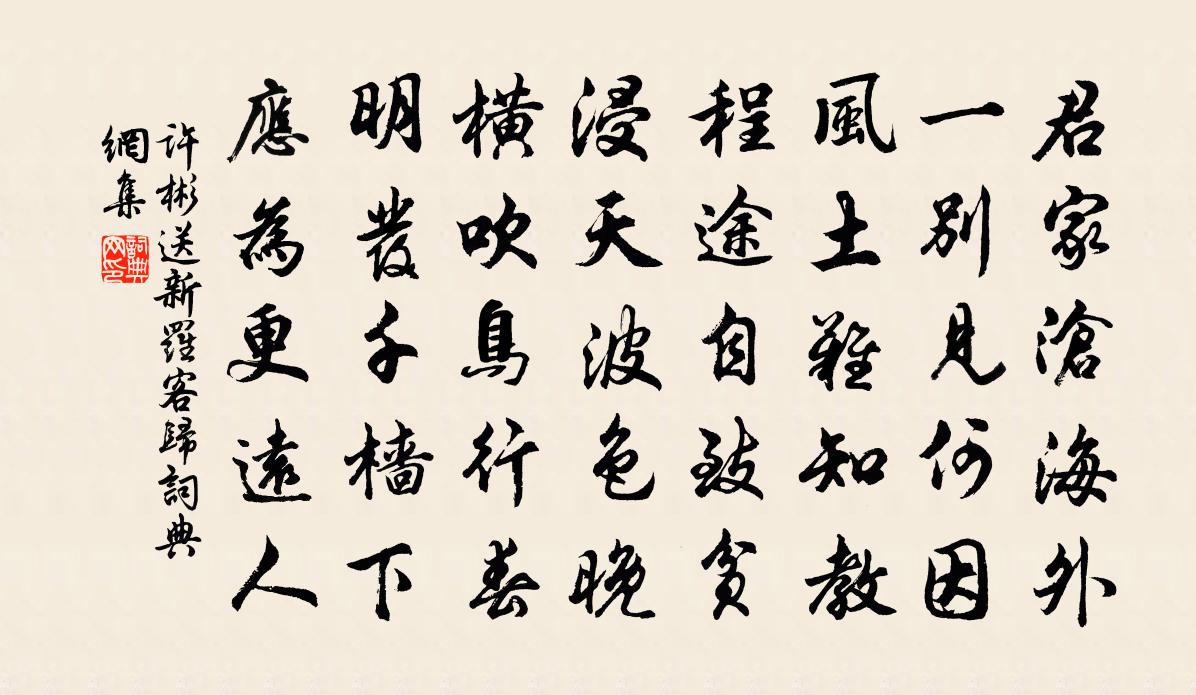 君家滄海外
一別見何因
風土難知教
程途自致貧
浸天波色晚
橫吹鳥行春
明發千檣下
應為更遠人
許彬送新羅客歸詞典
網集
詞典
网印